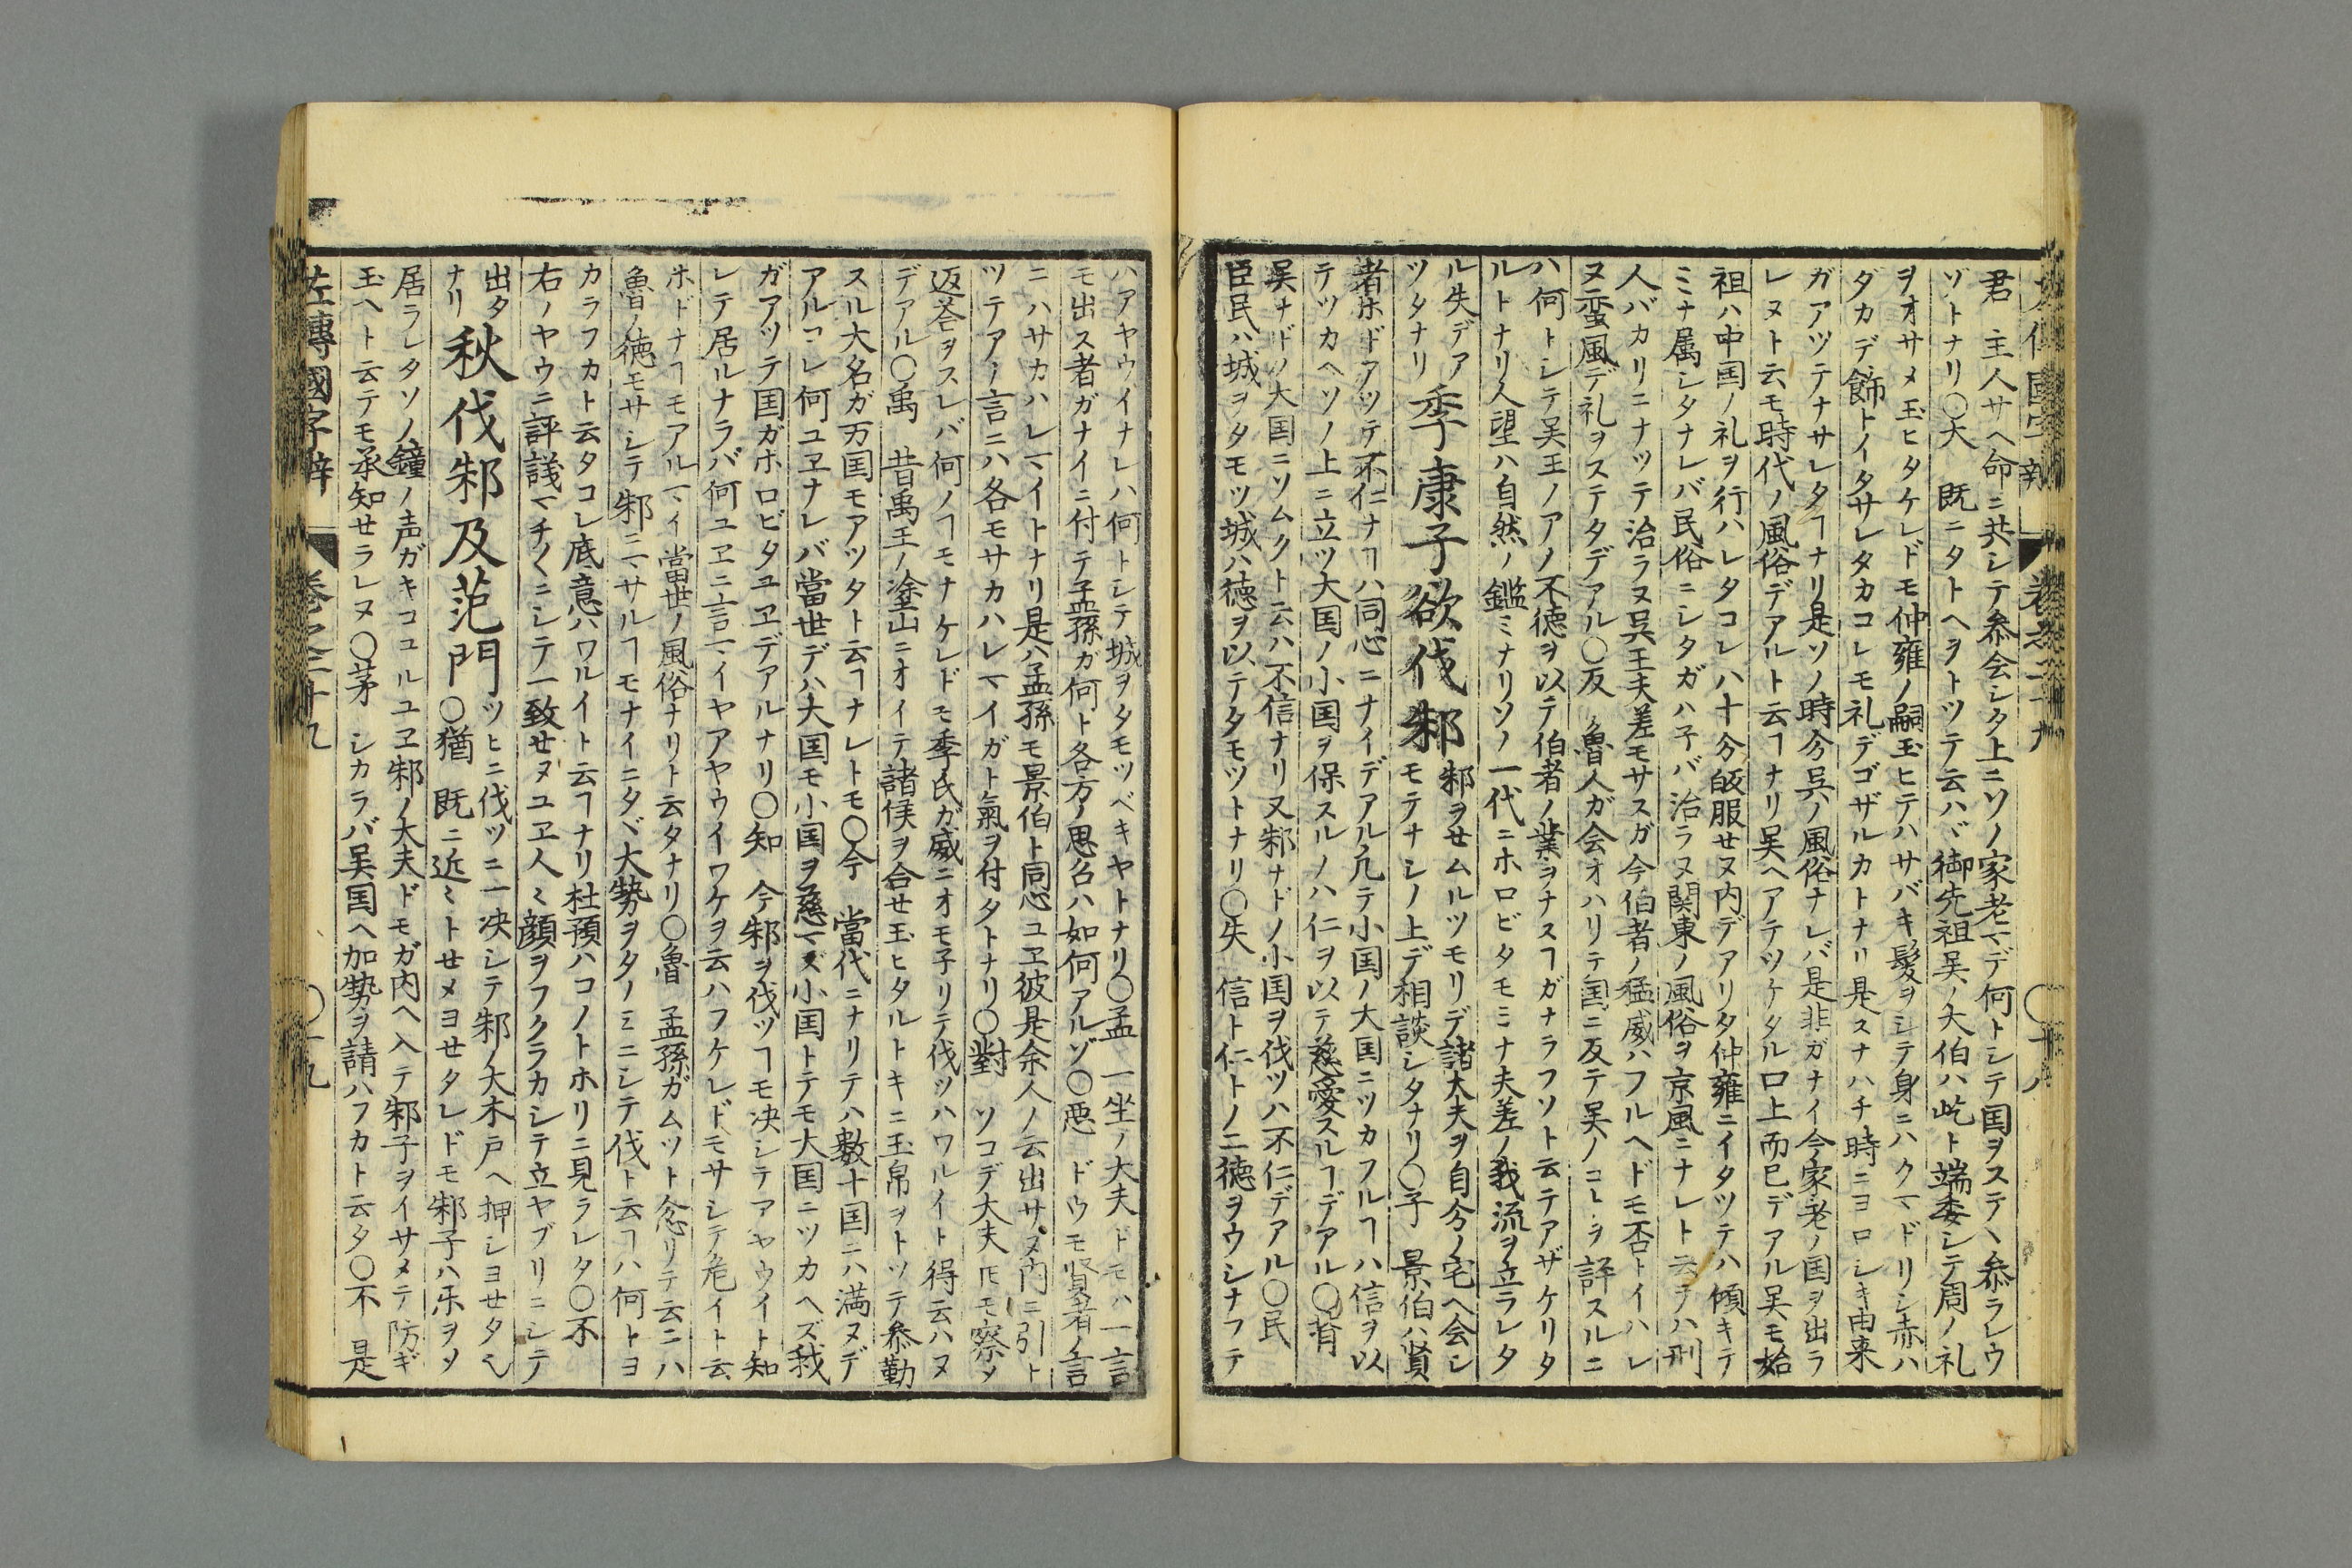 君　主人サヘ命ニ共シテ参会シタ上ニソノ家老マデ何トシテ国ヲステヽ参ラレウ
ゾトナリ○大　既ニタトヘヲトツテ云ハヾ御先祖呉ノ大伯ハ屹ト端委シテ周ノ礼
ヲオサメ玉ヒタケレドモ仲雍ノ嗣玉ヒテハサバキ髪ヲシテ身ニハクマドリシ赤ハ
ダカデ飾トイタサレタカコレモ礼デゴザルカトナリ是スナハチ時ニヨロシキ由来
ガアツテナサレタヿナリ是ソノ時分呉ノ風俗ナレバ是非ガナイ今家老ノ国ヲ出ラ
レヌト云モ時代ノ風俗デアルト云ヿナリ呉ヘアテツケタル口上而已デアル呉モ始
祖ハ中国ノ礼ヲ行ハレタコレハ十分皈服セヌ内デアリタ仲雍ニイタツテハ傾キテ
ミナ属シタナレバ民俗ニシタガハ子バ治ラヌ関東ノ風俗ヲ京風ニナレト云テハ刑
人バカリニナツテ治ラヌ呉王夫差モサスガ今伯者ノ猛威ハフルヘドモ否トイハレ
ヌ蛮風デ礼ヲステタデアル○反　魯人ガ会オハリテ国ニ反テ呉ノコトヲ評スルニ
ハ何トシテ呉王ノアノ不徳ヲ以テ伯者ノ業ヲナスヿガナラフソト云テアザケリタ
ルトナリ人望ハ自然ノ鑑ミナリソノ一代ニホロビタモミナ夫差ノ我流ヲ立ラレタ
ル失デア
ツタナリ
季康子欲伐邾
邾ヲせムルツモリデ諸大夫ヲ自分ノ宅ヘ会シ
モテナシノ上デ相談シタナリ○子　景伯ハ賢
者ホドアツテ不仁ナヿハ同心ニナイデアル凡テ小国ノ大国ニツカフルヿハ信ヲ以
テツカヘソノ上ニ立ツ大国ノ小国ヲ保スルノハ仁ヲ以テ慈愛スルヿデアル○背
呉ナドノ大国ニソムクト云ハ不信ナリ又邾ナドノ小国ヲ伐ツハ不仁デアル○民
臣民ハ城ヲタモツ城ハ徳ヲ以テタモツトナリ○失　信ト仁トノ二徳ヲウシナフテ
ハアヤウイナレハ何トシテ城ヲタモツベキヤトナリ○孟　一坐ノ大夫ドモハ一言
モ出ス者ガナイニ付テ孟孫ガ何ト各方ノ思召ハ如何アルゾ○惡　ドウモ賢者ノ言
ニハサカハレマイトナリ是ハ孟孫モ景伯ト同心ユヱ彼是余人ノ云出サヌ内ニ引ト
ツテアノ言ニハ各モサカハレマイガト氣ヲ付タトナリ○對　ソコデ大夫𪜈モ察メ
返荅ヲスレバ何ノヿモナケレドモ季氏ガ威ニオモ子リテ伐ツハワルイト得云ハヌ
デアル○禹　昔禹王ノ塗山ニオイテ諸侯ヲ合セ玉ヒタルトキニ玉帛ヲトツテ参勤
スル大名ガ万国モアツタト云ヿナレトモ○今　當代ニナリテハ數十国ニハ満ヌデ
アルコレ何ユヱナレバ當世デハ大国モ小国ヲ慈マズ小国トテモ大国ニツカヘズ我
ガアツテ国ガホロビタユヱデアルナリ○知　今邾ヲ伐ツヿモ决シテアヤウイト知
レテ居ルナラバ何ユヱニ言マイヤアヤウイワケヲ云ハフケレドモサシテ危イト云
ホドナヿモアルマイ當世ノ風俗ナリト云タナリ○魯　孟孫ガムツト忿リテ云ニハ
魯ノ徳モサシテ邾ニマサルヿモナイニタヾ大勢ヲタノミニシテ伐ト云ヿハ何トヨ
カラフカト云タコレ底意ハワルイト云ヿナリ杜預ハコノトホリニ見ラレタ○不
右ノヤウニ評議マチ〳〵ニシテ一致せヌユヱ人ミ顔ヲフクラカシテ立ヤブリニシテ
出タ
ナリ
秋伐邾及范門
ツヒニ伐ツニ一决シテ邾ノ大木戸ヘ押シヨせタ
○猶　既ニ近ミトせメヨせタレドモ邾子ハ乐ヲメ
居ラレタソノ鐘ノ声ガキコユルユヱ邾ノ大夫ドモガ内ヘ入テ邾子ヲイサメテ防ギ
玉ヘト云テモ承知せラレヌ○茅　シカラバ呉国ヘ加勢ヲ請ハフカト云タ○不　是
左傳國字辯　巻之三十九　○十九